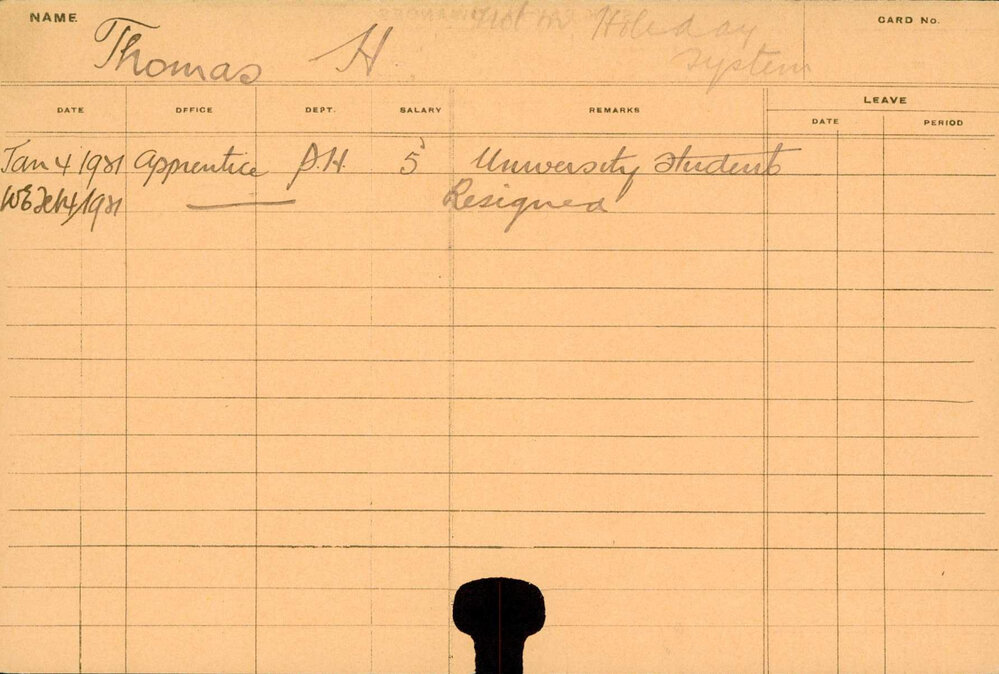 NAME. Thomas H. Holiday System CARD No.
DATE OFFICE DEPT. SALARY REMARKS LEAVE
DATE PERIOD
Jan 4 1921 Apprentice 5 University Student
WE Feb 4/1921 Resigned